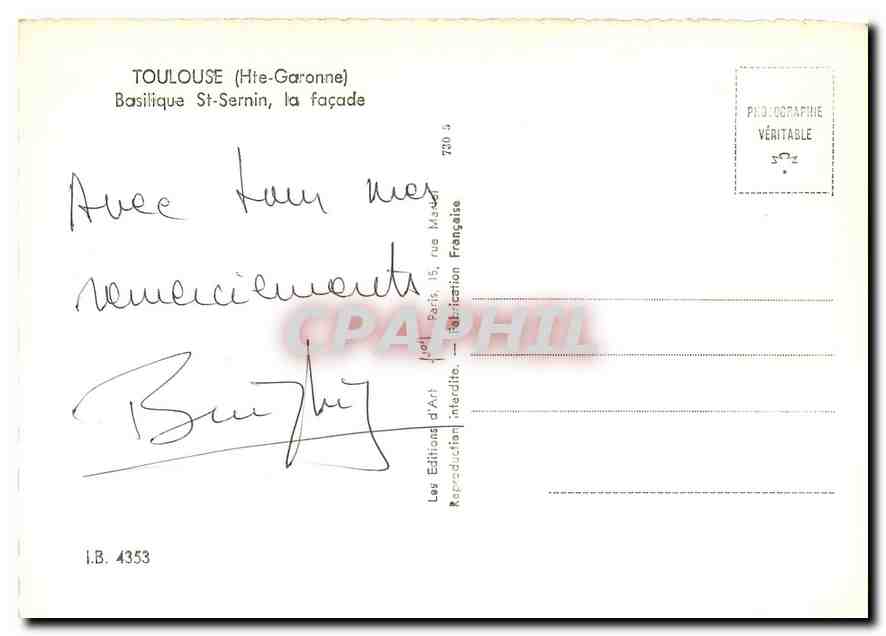 TOULOUSE (Hte-Garonne)
Basilique St-Sernin, la façade
Avec tous mes
remerciements
I.B. 4353
Les Editions d'Art Yvon Paris, 15, rue Martel 730 5
Reproduction interdite. — Fabrication Française
PHOTOGRAPHIE
VÉRITABLE
CPAPHIL